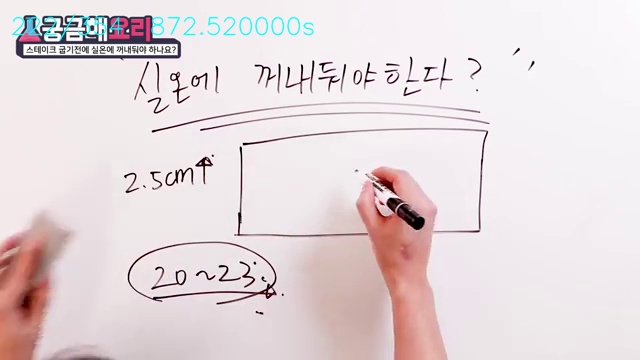 872.520000s
궁금해요리
스테이크 굽기전에 실온에 꺼내둬야 하나요?
실온에 꺼내둬야한다?
2.5cm↑
20~23